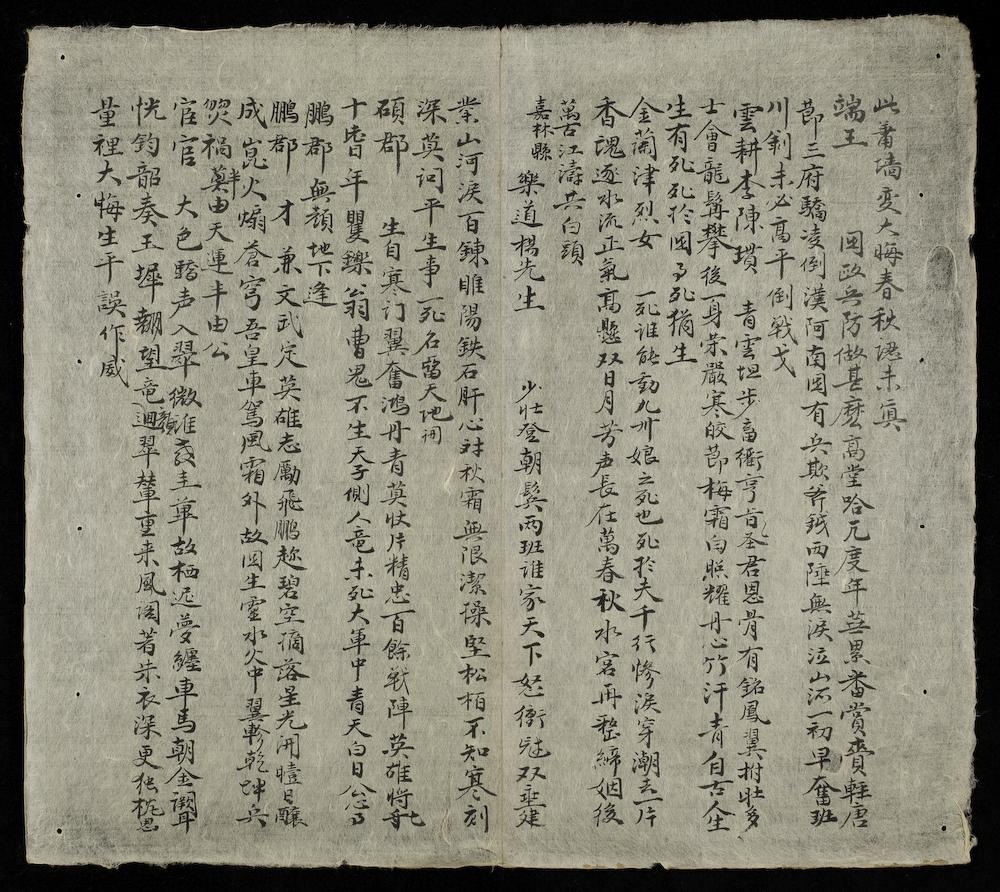 此蕭墙変大晦春秋愢未寘
端王 国政兵防做甚麽高堂哈兀度年華累番賞賚軽唐
節三府驕凌倒漢阿南国有兵欺斧鉞西陲無淚泣山河一初早奮班
川剣未必高平倒戦戈
雲耕李陳瓚 青雲坦步畜衢亨旨圣君恩骨有銘鳳翼拊壮多
士會龍髯攀後一身荣嚴寒皎節梅霜白照耀丹心竹汗青自古人生
生有死死於国馬死猶生
金蘭津烈女 一死誰能動九州娘之死也死於夫千行惨淚穿潮去一片
香魂逐水流正氣高懸双日月芳声長在萬春秋水宮再整締姻後
萬古江濤共白頭
嘉林縣樂道楊先生 少壮登朝鬓両班谁家天下怒衝冠双垂建
業山河淚百鍊睢陽鉄石肝心対秋霜無限潔操堅松栢不知寒刻
深莫问平生事一死名留天地冊
碩郡 生自寒门翼奮鴻丹青英状片精忠百餘戦陣英雄將七
十皆年矍鑠翁曹鬼不生天子側人竜未死大軍中青天白日忩馬
鵬郡 無顔地下逢
鵬郡 才兼文武定英雄志勵飛鵬趂碧空摘落星光開曀日釀
成崑火煽蒼穹吾皇車駕風霜外故国生霊水火中翼軫乾坤兵
燹禍難由天運半由公
宦官 大色声入翠微难衣圭革故栖迟夢纏車馬朝金闕耳
恍钧韶奏玉墀翹望竜迴翠輦重来風阁著朱衣深更独枕思
量裡大悔生平誤作威